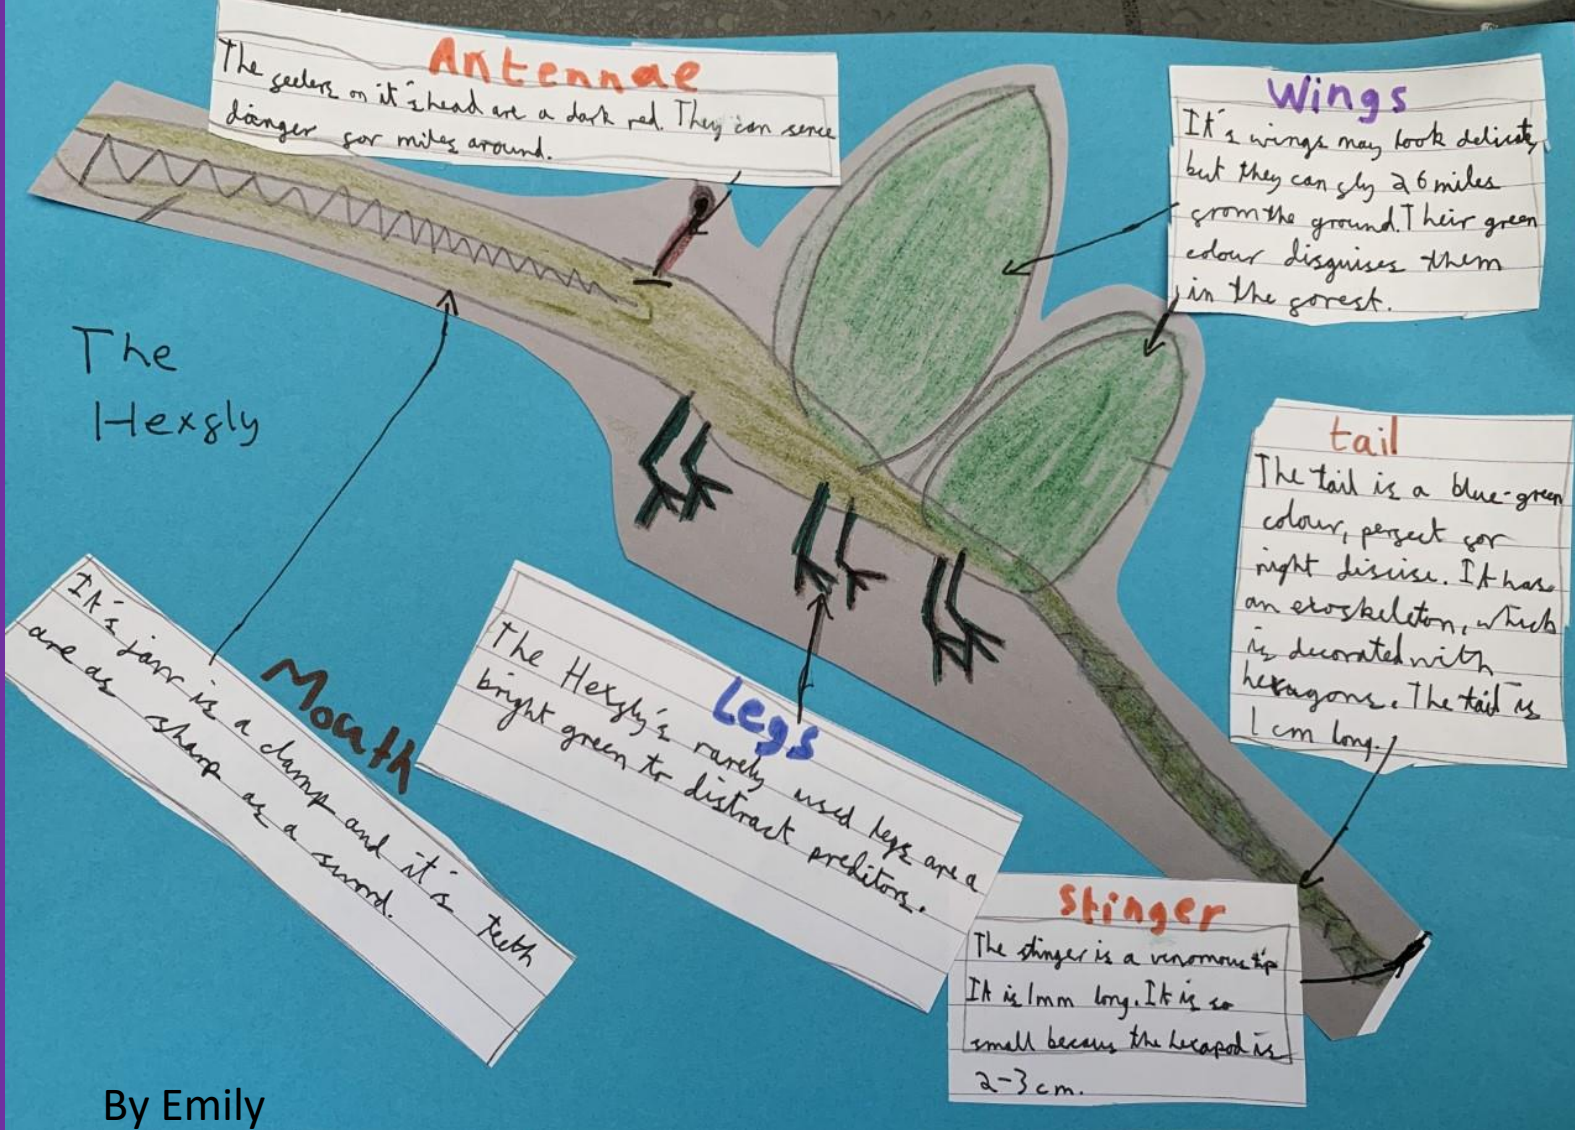 Antennae
The feelers on it's head are a dark red. They can sence
danger for miles around.
Wings
It's wings may look delicate,
but they can fly 26 miles
from the ground. Their green
colour disguises them
in the forest.
The
Hexfly
tail
The tail is a blue-green
colour, perfect for
night discise. It has
an exoskeleton, which
is decorated with
hexagons. The tail is
1 cm long.
Mouth
It's jaw is a clamp and it's teeth
are as sharp as a sword.
Legs
The Hexfly's rarely used legs are a
bright green to distract preditors.
Stinger
The stinger is a venomous tip
It is 1mm long. It is so
small becaus the hexapod is
2-3 cm.
By Emily